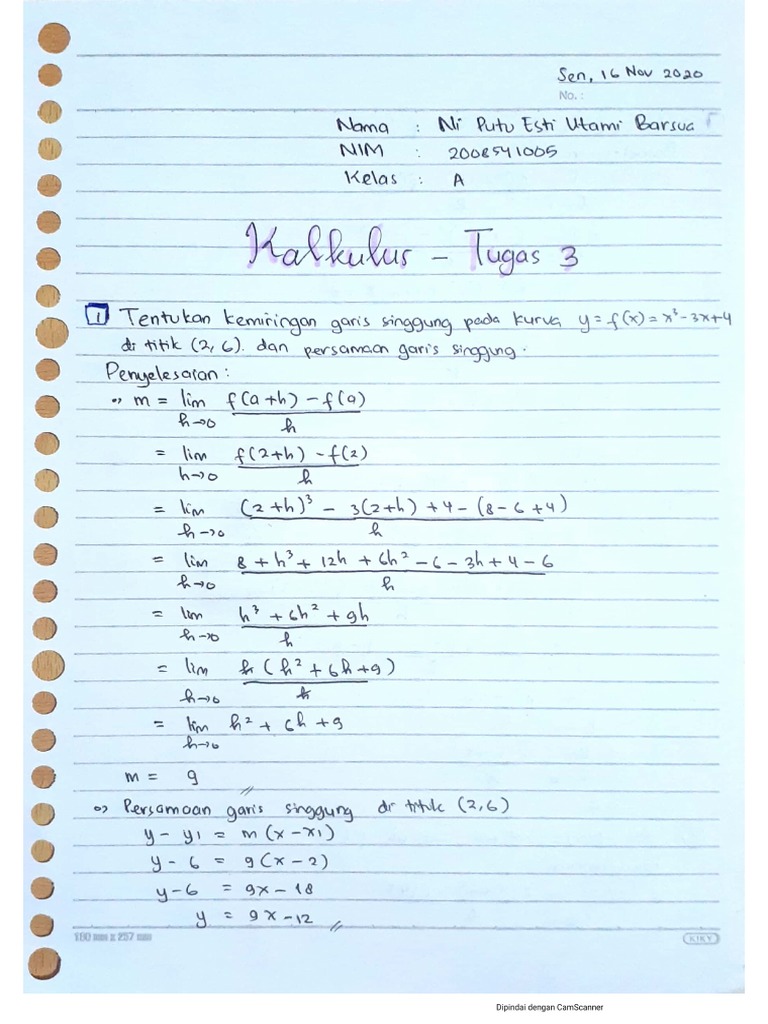 Sen, 16 Nov 2020
No. :
Nama : Ni Putu Esti Utami Barsua
NIM : 2008541005
Kelas : A
Kalkulus - Tugas 3
1 Tentukan kemiringan garis singgung pada kurva y = f(x) = x³-3x+4
di titik (2,6). dan persamaan garis singgung.
Penyelesaian :
•> m = lim f(a+h) - f(a)
h→0 h
= lim f(2+h) - f(2)
h→0 h
= lim (2+h)³ - 3(2+h) + 4 - (8-6+4)
h→0 h
= lim 8 + h³ + 12h + 6h² - 6 - 3h + 4 - 6
h→0 h
= lim h³ + 6h² + 9h
h→0 h
= lim h (h² + 6h + 9)
h→0 h
= lim h² + 6h + 9
h→0
m = 9 //
•> Persamaan garis singgung di titik (2,6)
y - y1 = m (x - x1)
y - 6 = 9(x - 2)
y - 6 = 9x - 18
y = 9x - 12 //
180 mm x 257 mm KIKY
Dipindai dengan CamScanner